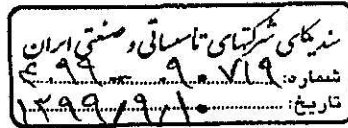 سندیکای شرکتهای تاسیساتی و صنعتی ایران
شماره: ۴۰۹۹-۹۰۷۱۹
تاریخ: ۱۳۹۹/۹/۱۰